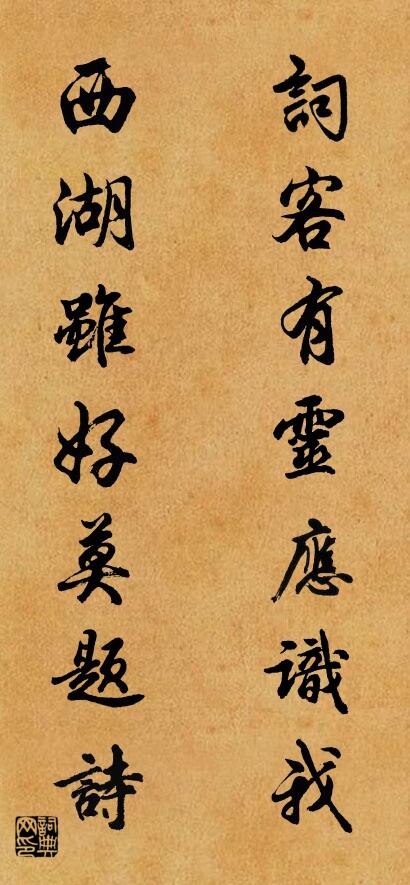 詞客有靈應識我
西湖雖好莫題詩
詞典网印